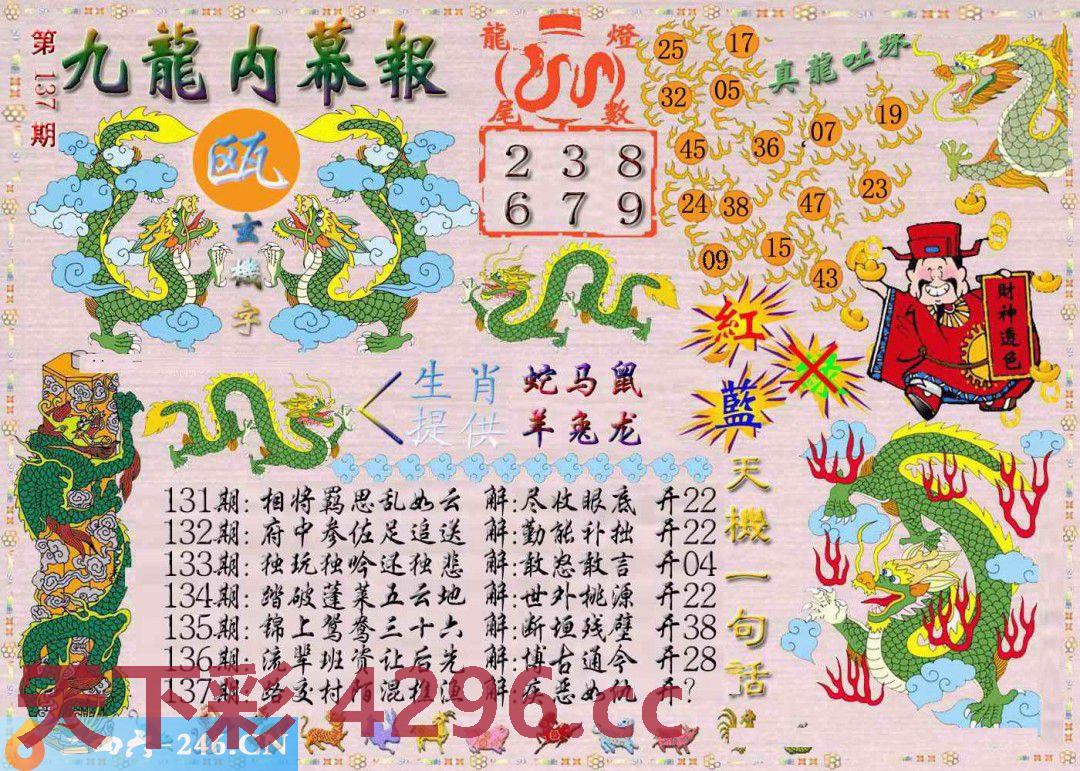 第137期
九龍内幕報
瓯
玄機字
龍燈
尾數
2 3 8
6 7 9
真龍吐珠
25 17
32 05
07 19
45 36
24 38 47 23
09 15
43
財神透色
紅
藍
生肖提供
蛇马鼠
羊兔龙
天機一句話
131期: 相将羁思乱如云 解:尽收眼底 开22
132期: 府中参佐足追送 解:勤能补拙 开22
133期: 独玩独吟还独悲 解:敢怒敢言 开04
134期: 踏破蓬莱五云地 解:世外桃源 开22
135期: 锦上鸳鸯三十六 解:断垣残壁 开38
136期: 流辈班资让后先 解:博古通今 开28
137期: 路交村陌混樵渔 解:疾恶如仇 开?
天下彩 4296.cc
246.CN